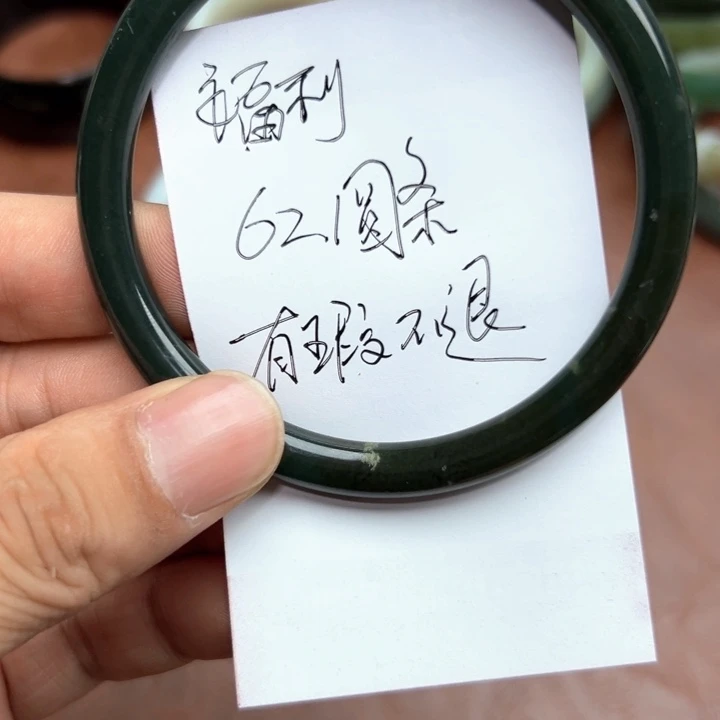 福利
62圆条
有瑕不退